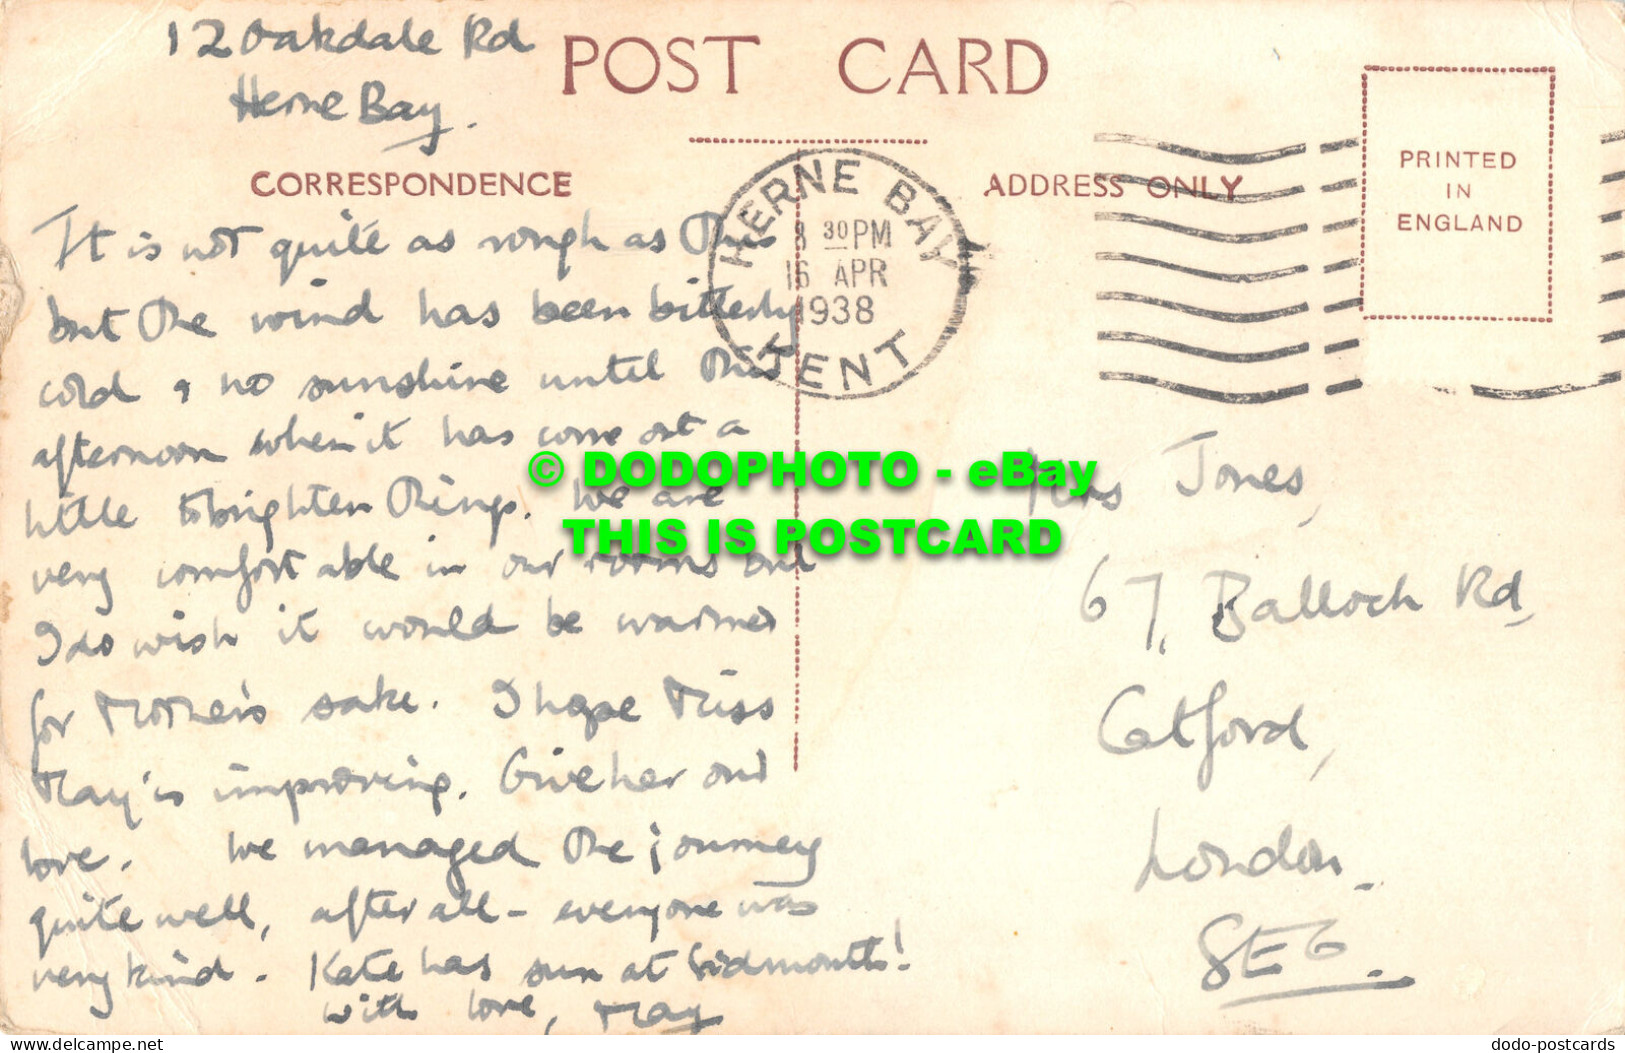 12 Oakdale Rd
Herne Bay.
POST CARD
CORRESPONDENCE
ADDRESS ONLY
PRINTED
IN
ENGLAND
HERNE BAY
30 PM
16 APR
1938
KENT
It is not quite as rough as this
but the wind has been bitterly
cold & no sunshine until this
afternoon when it has come out a
little to brighten things. We are
very comfortable in our rooms and
I do wish it would be warmer
for Mother's sake. I hope Miss
May is improving. Give her our
love. We managed the journey
quite well, after all - everyone was
very kind. Kate has sun at Sidmouth!
with love, May
Mrs Jones,
67, Balloch Rd,
Catford,
London.
SE6.
© DODOPHOTO - eBay
THIS IS POSTCARD
delcampe.net
dodo-postcards